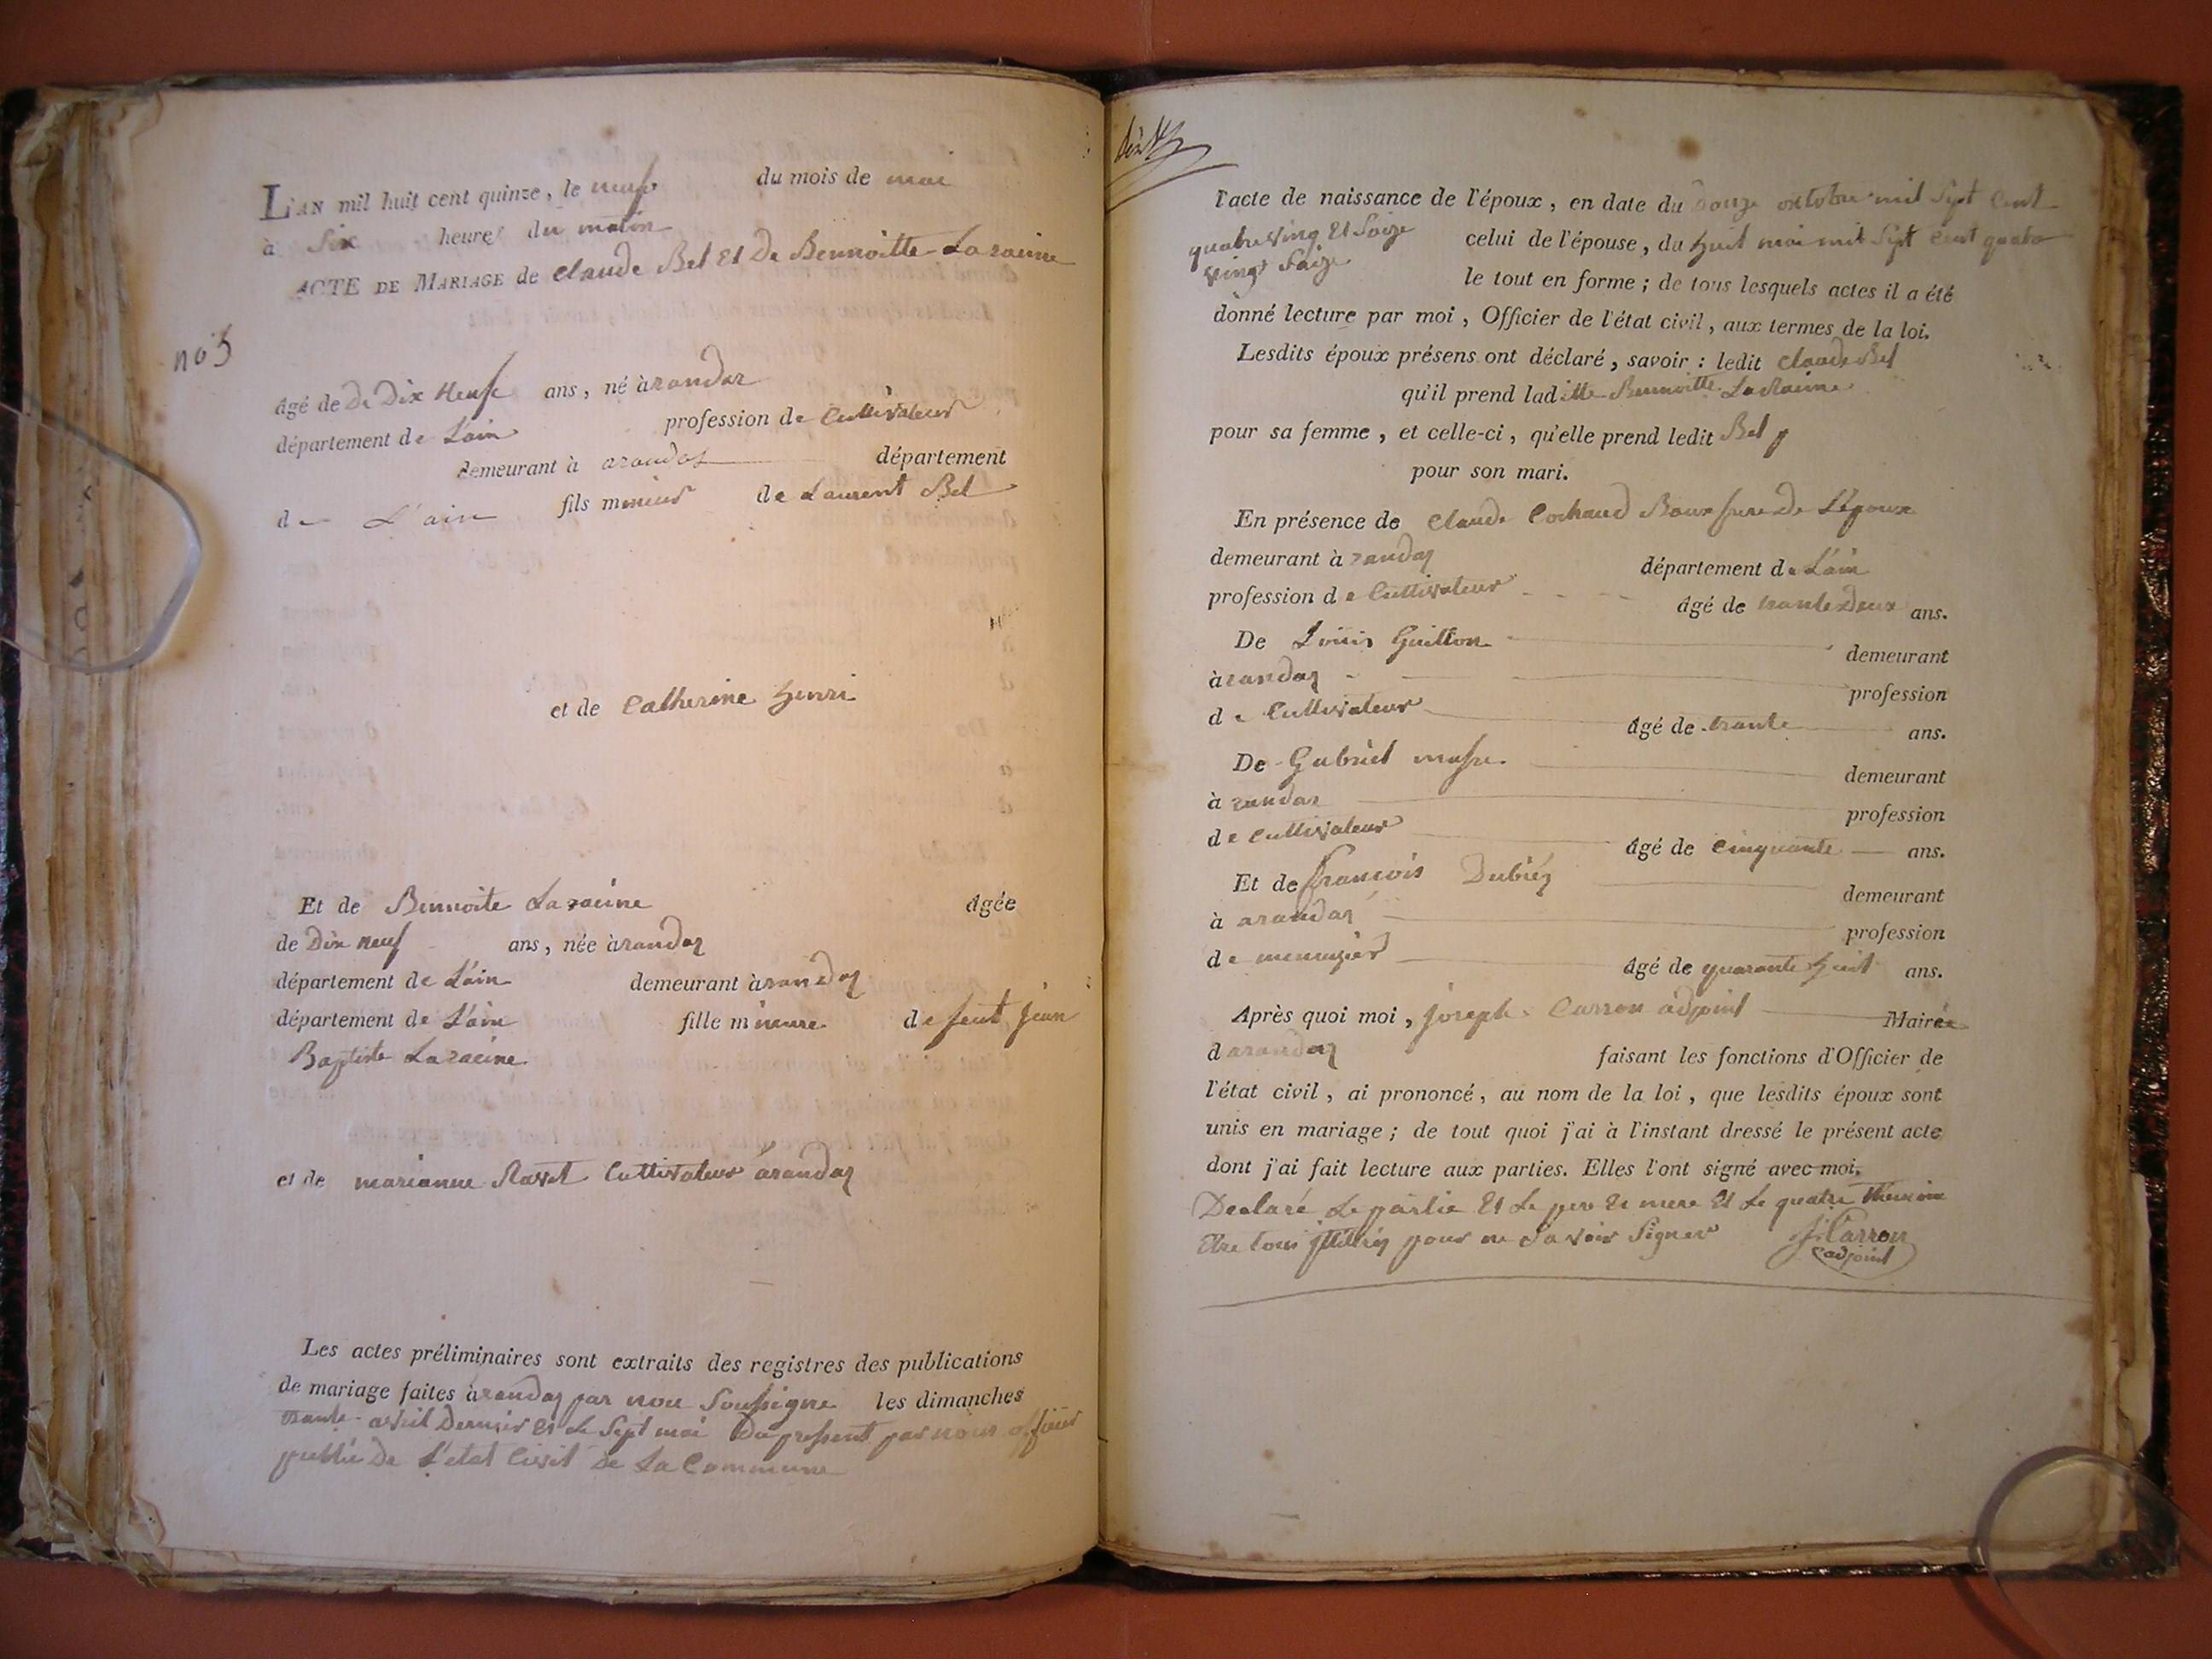 L'AN mil huit cent quinze, le neuf du mois de mai
à Six heures du matin
ACTE DE MARIAGE de Claude Bel Et De Bennoitte Laracine
no 5
âgé de De Dix Neuf ans, né àrandas
département de L'ain profession de Cultivateur
demeurant à arandas département
de L'ain fils mineur de Laurent Bel
et de Catherine henri
Et de Bennoite Laracine âgée
de Dix neuf ans, née àrandas
département de L'ain demeurant àrandas
département de L'ain fille mineure de feut jean
Baptiste Laracine
et de marianne Ravet Cultivateur àrandas
Les actes préliminaires sont extraits des registres des publications
de mariage faites àrandas par nou Soussigne les dimanches
trante avril Dernier et Le Sept mai Du present par nous officier
public De L'etat Civil De La Commune
l'acte de naissance de l'époux, en date du Douze octobre mil Sept Cent
quatre ving Et Saize celui de l'épouse, du huit mai mil Sept Cent quatre
vingt Saize le tout en forme; de tous lesquels actes il a été
donné lecture par moi, Officier de l'état civil, aux termes de la loi.
Lesdits époux présens ont déclaré, savoir : ledit Claude Bel
qu'il prend laditte Bennoitte Laracine
pour sa femme, et celle-ci, qu'elle prend ledit Bel
pour son mari.
En présence de Claude Cochaud Beau frere De L'époux
demeurant àrandas département de L'ain
profession de Cultivateur âgé de trante Deux ans.
De Louis Guitton demeurant
àrandas profession
de Cultivateur âgé de trante ans.
De Gabriel demeurant
àrandas profession
de Cultivateur âgé de Cinquante ans.
Et de francois Dubiez demeurant
à arandas profession
de menuzier âgé de quarante huit ans.
Après quoi moi, joseph Carron adjoint Mairée
d'arandas faisant les fonctions d'Officier de
l'état civil, ai prononcé, au nom de la loi, que lesdits époux sont
unis en mariage; de tout quoi j'ai à l'instant dressé le présent acte
dont j'ai fait lecture aux parties. Elles l'ont signé avec moi.
Declaré Le partie Et Le pere Et mere Et Le quatre
Etre tous pour ne Savoir Signer J. Carron
adjoint